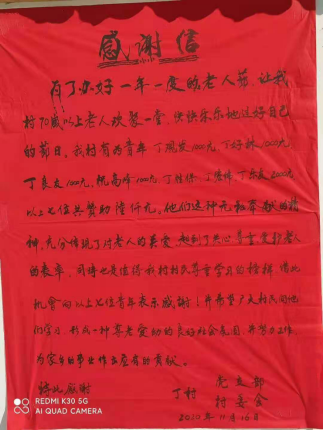 感谢信
为了办好一年一度的老人节，让我
村70岁以上老人欢聚一堂，快快乐乐地过好自己
的节日，我村有为青年 丁 1000元 丁好林1000元
丁良友1000元 高 1000元 丁 丁 丁 2000元
以上七位共赞助 仟元，他们这种无私奉献的精
神，充分体现了对老人的关爱，起到了关心尊重爱护老人
的表率，同时也是值得我村村民尊重学习的榜样，借此
机会向以上七位青年表示感谢！并希望广大村民向他
们学习，形成一种尊老爱幼的良好社会氛围，并努力工作，
为家乡的事业作出应有的贡献。
特此感谢
丁村 党支部
村委会
2020年11月16日
REDMI K30 5G
AI QUAD CAMERA